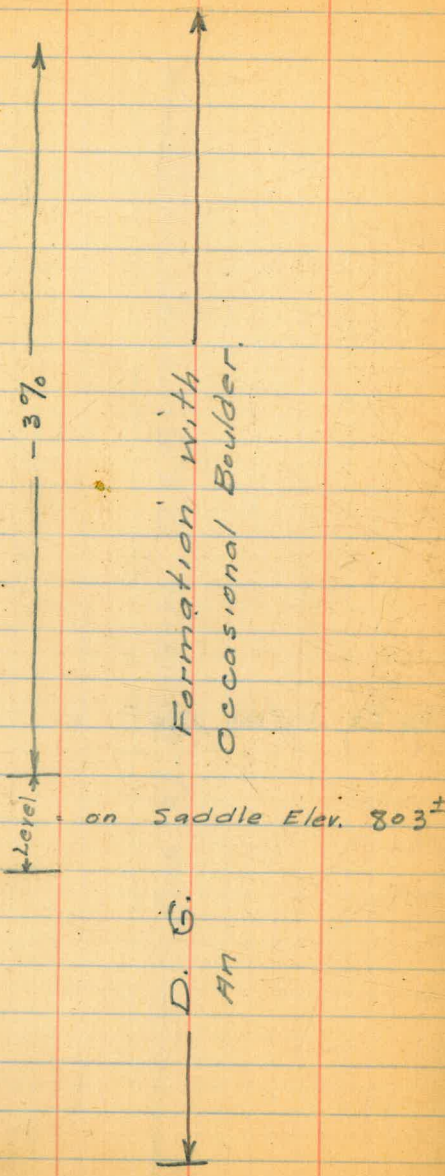 -3%
Level
on Saddle Elev. 803±
D. G. Formation with
An Occasional Boulder.